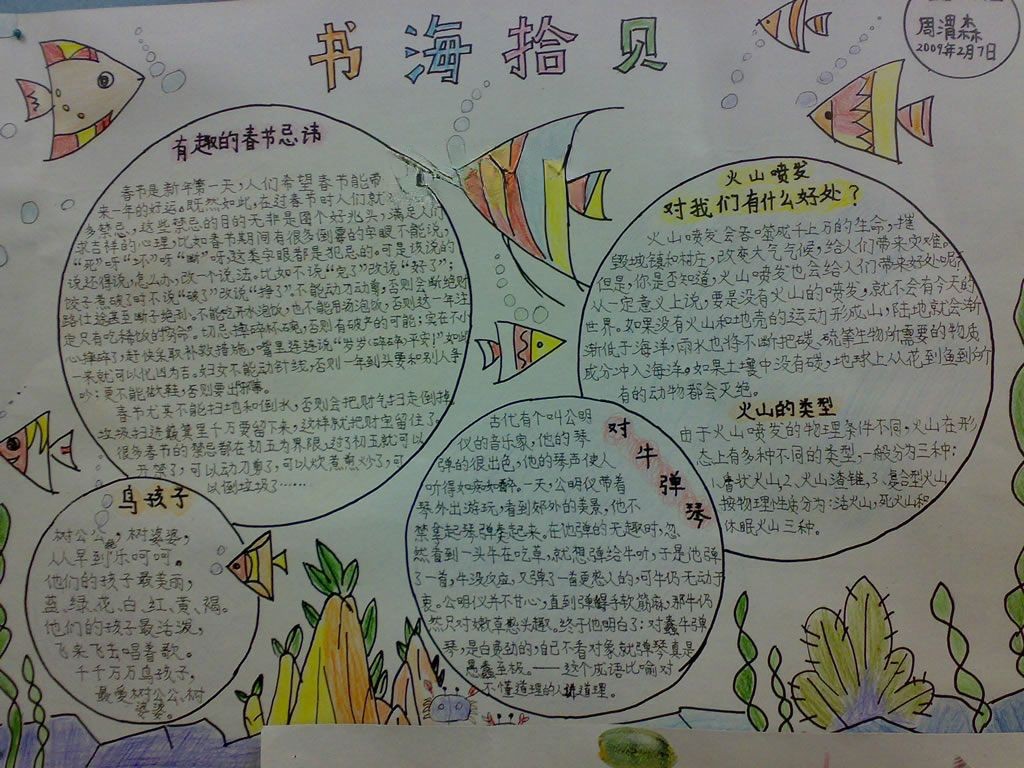 书海拾贝
周渭森
2009年2月7日
有趣的春节忌讳
春节是新年第一天,人们希望春节能带
来一年的好运。既然如此,在过春节时人们就
多禁忌,这些禁忌的目的无非是图个好兆头,满足人们
求吉祥的心理,比如春节期间有很多倒霉的字眼不能说,
“死”呀“坏”呀“断”呀,这类字眼都是犯忌的。可是该说的
说还得说,怎么办,改一个说法。比如不说“完了”改说“好了”;
饺子煮破了时不说“破了”改说“挣了”。不能动刀动剪,否则会断绝财
路仕途甚至断子绝孙。不能吃开水泡饭,也不能用汤泡饭,否则这一年注
定只有吃稀饭的“穷命”。切忌摔碎杯碗,否则有破产的可能;实在不小
心摔碎了,赶快采取补救措施,嘴里连连说“岁岁(碎碎)平安”如此
一来就可以化凶为吉。妇女不能动针线,否则一年到头要和别人争
吵;更不能做鞋,否则要出邪事。
春节尤其不能扫地和倒水,否则会把财气扫走倒掉。
垃圾扫进簸箕里千万要留下来,这样就把财留住了。
很多春节的禁忌都在初五为界限,过了初五就可以
开荤了,可以动刀剪了,可以炊煮煎炒了,可
以倒垃圾了……
火山喷发
对我们有什么好处?
火山喷发会吞噬成千上万的生命,摧
毁城镇和村庄,改变大气气候,给人们带来灾难。
但是,你是否知道,火山喷发也会给人们带来好处呢?
从一定意义上说,要是没有火山的喷发,就不会有今天的
世界。如果没有火山和地壳的运动形成山,陆地就会渐
渐低于海洋,雨水也将不断把碳、硫等生物所需要的物质
成分冲入海洋。如果土壤中没有碳,地球上从花到鱼到所
有的动物都会灭绝。
火山的类型
由于火山喷发的物理条件不同,火山在形
态上有多种不同的类型,一般分为三种:
1、盾状火山,2、火山渣锥,3、复合型火山
按物理性质分为:活火山,死火山和
休眠火山三种。
鸟孩子
树公公,树婆婆,
从早到乐呵呵。
他们的孩子最美丽,
蓝、绿、花、白、红、黄、褐。
他们的孩子最活泼,
飞来飞去唱着歌。
千千万万鸟孩子,
最爱树公公、树
婆婆。
对牛弹琴
古代有个叫公明
仪的音乐家,他的琴
弹的很出色,他的琴声使人
听得如痴如醉。一天,公明仪带着
琴外出游玩,看到郊外的美景,他不
禁拿起琴弹奏起来。在他弹的无趣时,忽
然看到一头牛在吃草,就想弹给牛听,于是他弹
了一首,牛没反应,又弹了一首更悠人的,可牛仍无动于
衷。公明仪并不甘心,直到弹得手软筋麻,那牛仍
然只对嫩草感兴趣。终于他明白了:对蠢牛弹
琴,是白费劲的,自己不看对象就弹琴真是
愚蠢至极。——这个成语比喻对
不懂道理的人讲道理。